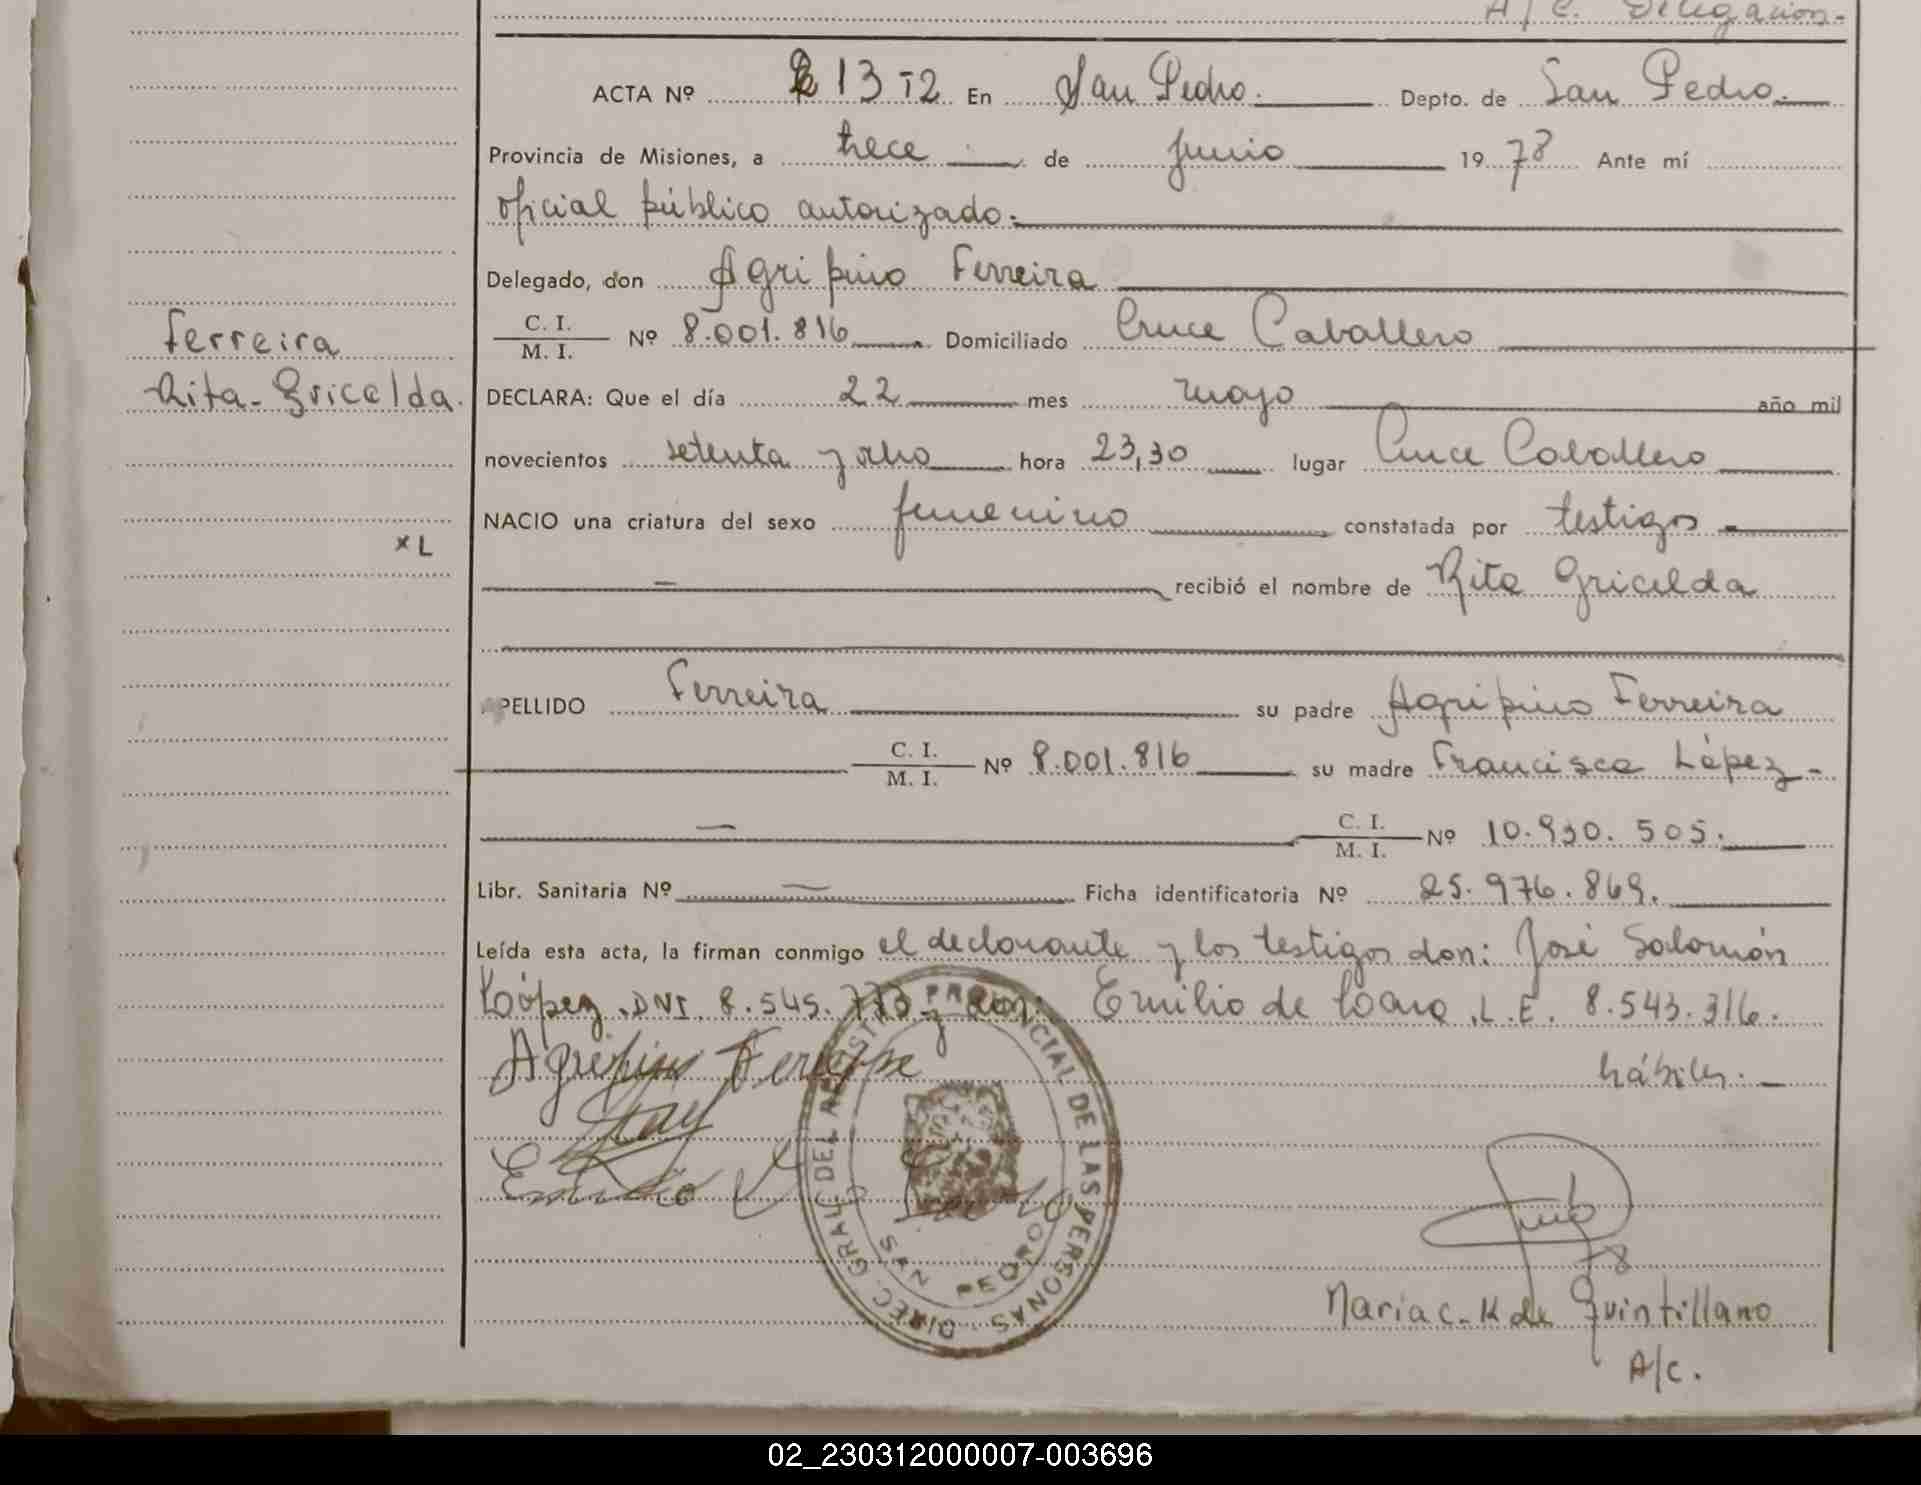 A/C. Delegación.-
ACTA Nº 213 T2 En San Pedro. Depto. de San Pedro.
Provincia de Misiones, a trece de junio 1978 Ante mí
oficial público autorizado.
Delegado, don Agripino Ferreira
C. I. / M. I. Nº 8.001.816 Domiciliado Cruce Caballero
Ferreira
Rita-Gricelda.
DECLARA: Que el día 22 mes mayo año mil
novecientos setenta y ocho hora 23,30 lugar Cruce Caballero
NACIO una criatura del sexo femenino constatada por testigos -
x L
recibió el nombre de Rita Gricelda
APELLIDO Ferreira su padre Agripino Ferreira
C. I. / M. I. Nº 8.001.816 su madre Francisca López -
C. I. / M. I. Nº 10.930.505.
Libr. Sanitaria Nº — Ficha identificatoria Nº 25.976.869.
Leída esta acta, la firman conmigo el declarante y los testigos don: José Salomón
López, DNI. 8.545.773 y don: Emilio de Lara, L.E. 8.543.316.
hábiles. -
Agripino Ferreira
Emilio
DIREC. GRAL. DEL REGISTRO PROVINCIAL DE LAS PERSONAS
SAN PEDRO
78
Maria C. K de Quintillano
A/C.
02_230312000007-003696